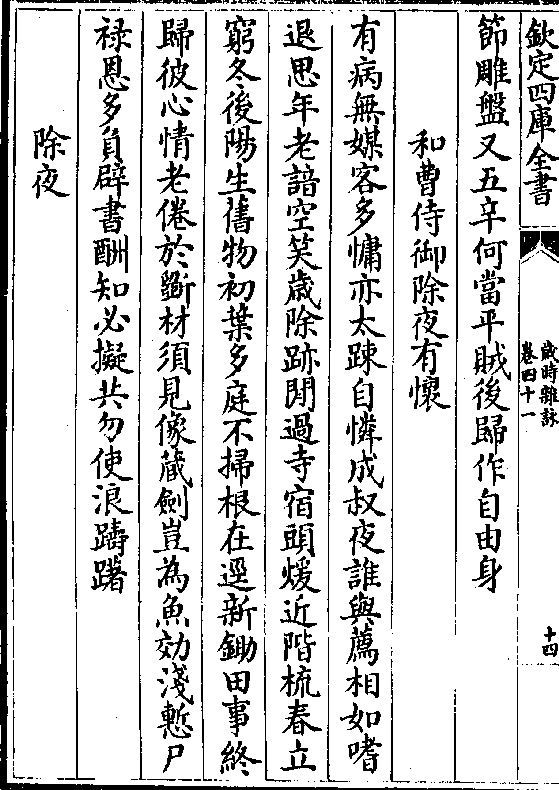 欽定四庫全書
歲時雜詠
卷四十一
十四
節雕盤又五辛何當平賊後歸作自由身
和曹侍御除夜有懷
有病無媒客多慵亦太踈自憐成叔夜誰與薦相如嗜
退思年老諳空笑歲除跡閒過寺宿頭煖近階梳春立
窮冬後陽生舊物初葉多庭不掃根在逕新鋤田事終
歸彼心情老倦於斵材須見像藏劍豈為魚効淺慙尸
祿恩多負辟書酬知必擬共勿使浪躊躇
除夜